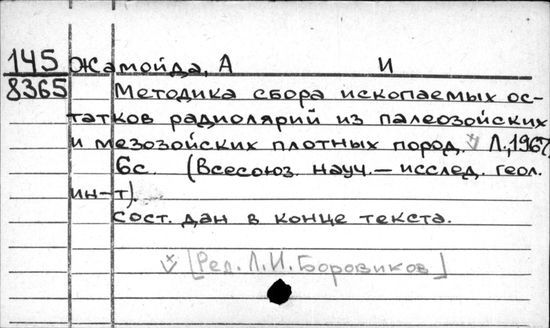 145 Жамойда, А И
8365 Методика сбора ископаемых ос-
татков радиолярий из палеозойских
и мезозойских плотных пород. Л., 1967.
6с. (Всесоюз. науч.-исслед. геол.
ин-т).
Сост. дан в конце текста.
[Ред. Л.И. Боровиков]